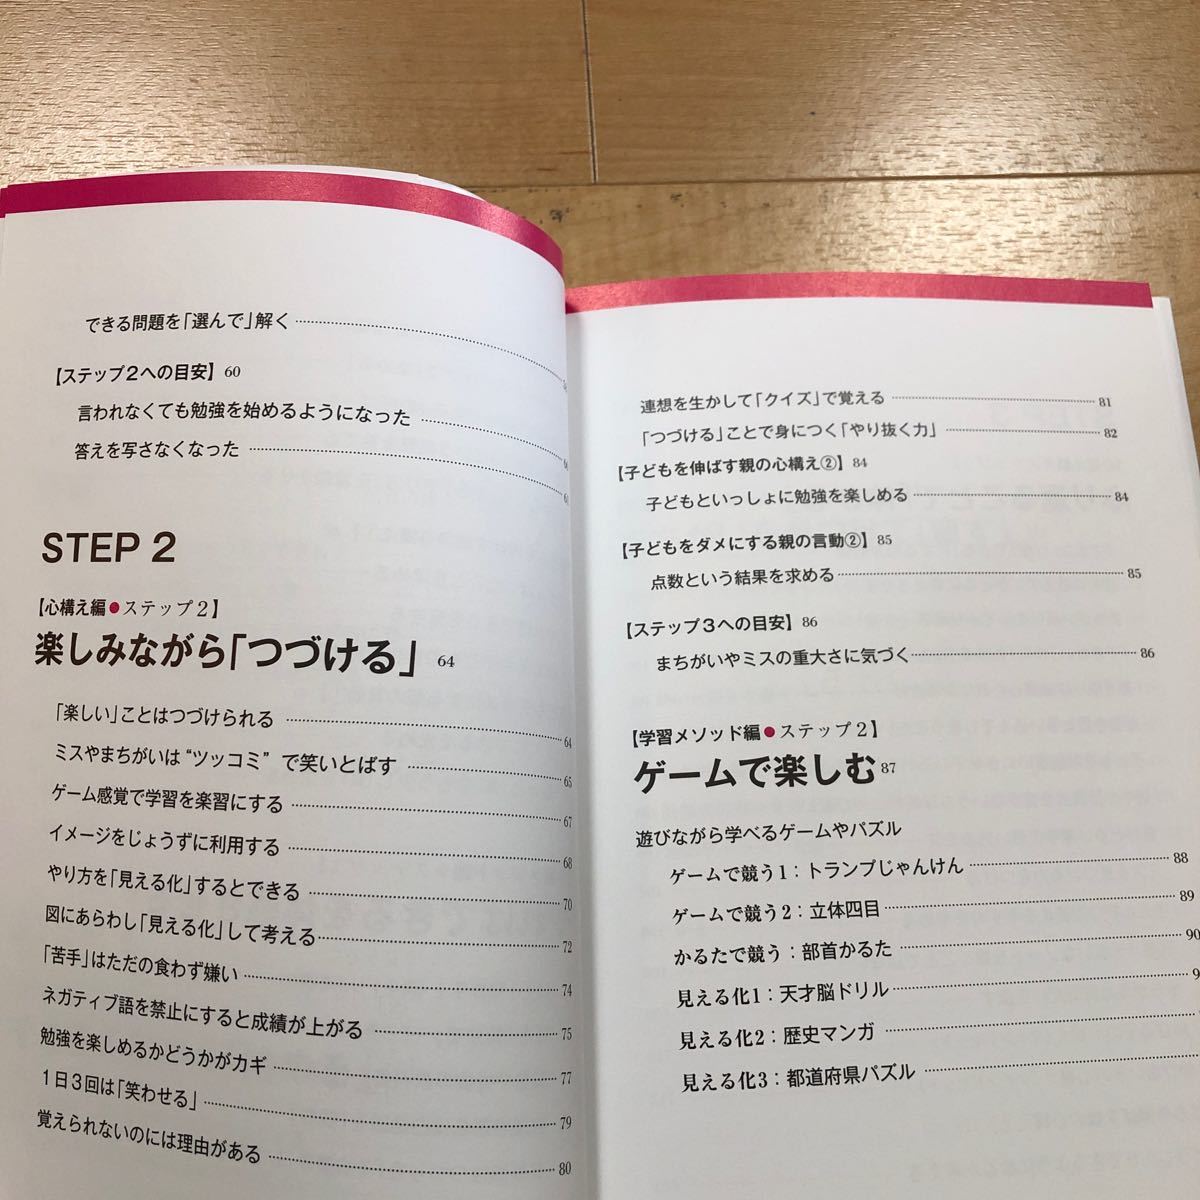 できる問題を「選んで」解く
【ステップ2への目安】 60
言われなくても勉強を始めるようになった
答えを写さなくなった
STEP 2
【心構え編●ステップ2】
楽しみながら「つづける」 64
「楽しい」ことはつづけられる 64
ミスやまちがいは“ツッコミ”で笑いとばす 65
ゲーム感覚で学習を楽習にする 67
イメージをじょうずに利用する 68
やり方を「見える化」するとできる 70
図にあらわし「見える化」して考える 72
「苦手」はただの食わず嫌い 74
ネガティブ語を禁止にすると成績が上がる 75
勉強を楽しめるかどうかがカギ 77
1日3回は「笑わせる」 79
覚えられないのには理由がある 80
連想を生かして「クイズ」で覚える 81
「つづける」ことで身につく「やり抜く力」 82
【子どもを伸ばす親の心構え②】 84
子どもといっしょに勉強を楽しめる 84
【子どもをダメにする親の言動②】 85
点数という結果を求める 85
【ステップ3への目安】 86
まちがいやミスの重大さに気づく 86
【学習メソッド編●ステップ2】
ゲームで楽しむ 87
遊びながら学べるゲームやパズル
ゲームで競う1：トランプじゃんけん 88
ゲームで競う2：立体四目 89
かるたで競う：部首かるた 90
見える化1：天才脳ドリル
見える化2：歴史マンガ
見える化3：都道府県パズル